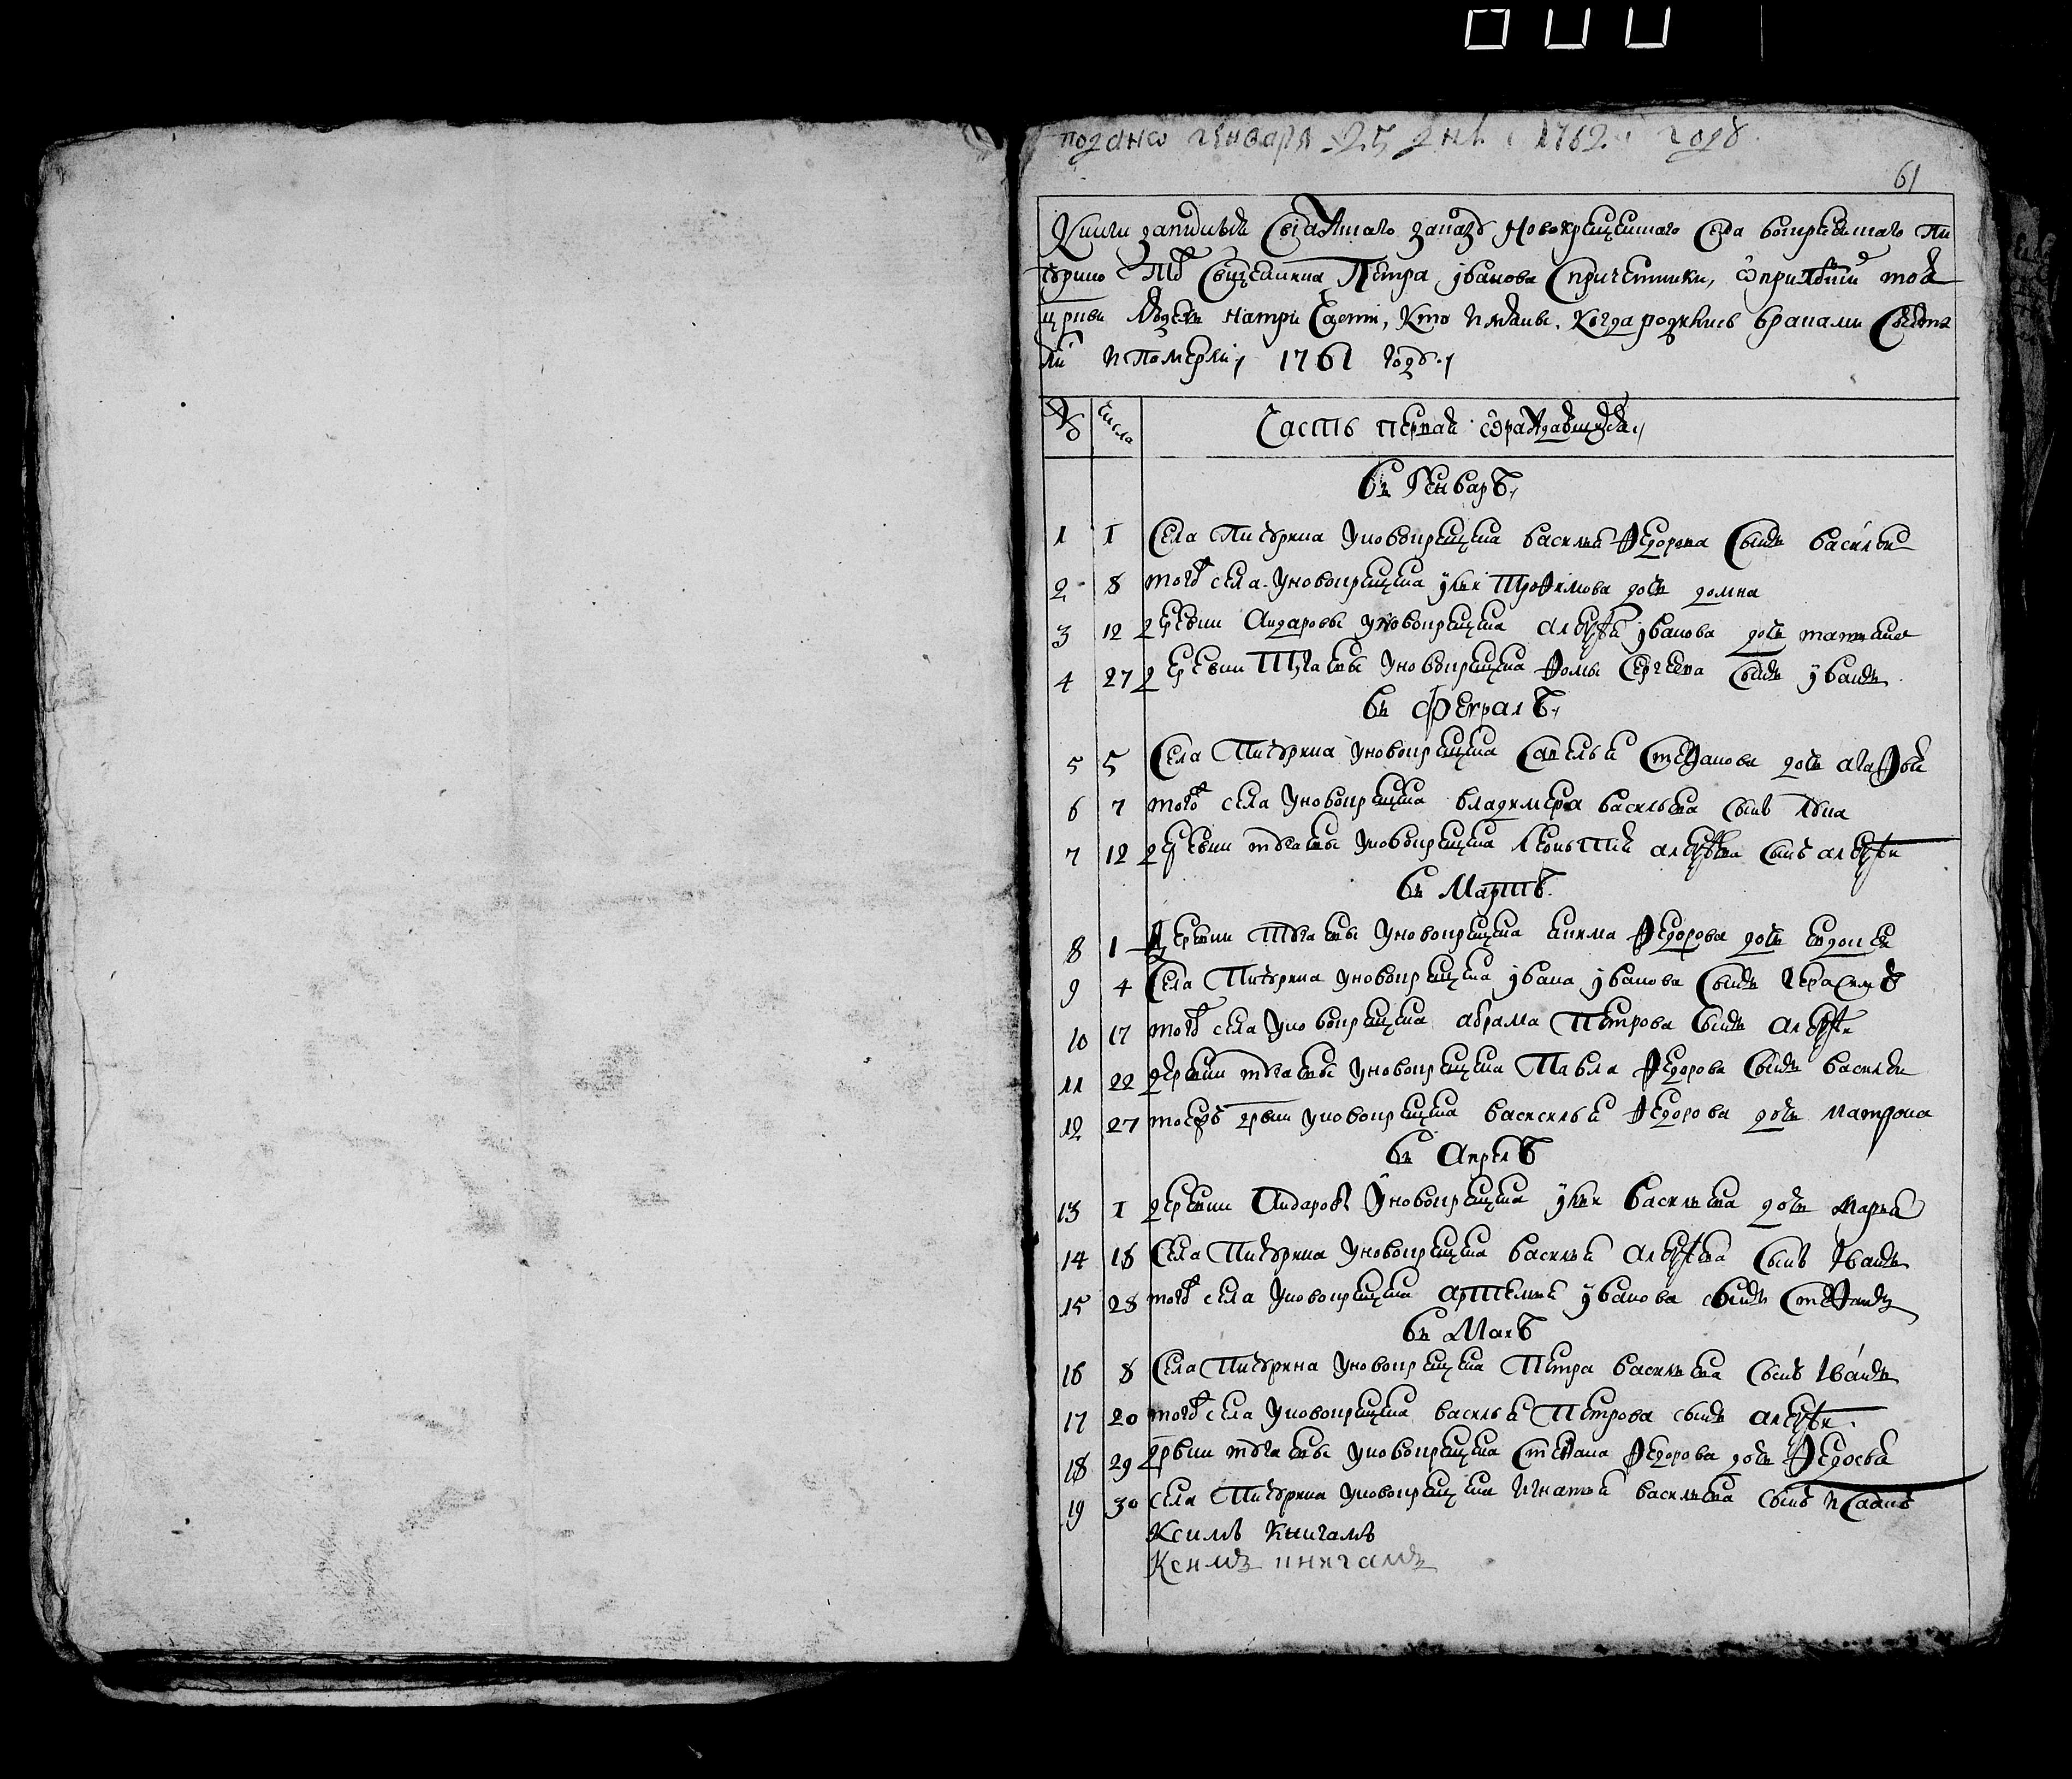 подано генваря 25 дня 1762 году
61
Книги записныя Свіяжскаго уезду Новокрещенскаго Села воскресенского Пи
тврина Свщенника Петра иванова Спричетники, оприходе тоя
цркви людехъ натри Части, Кто имяны. Когда родились браками Сочета
лись ипомерли, 1761 году
№ Числа Часть первая о раждающихся
въ Генваре
1 1 Села Питврина уновокрещена василья Федорова Сынъ василеи
2 8 того села уновокрещена ильи трофимова дочь домна
3 12 деревни Аидаровы уновокрещена алексея иванова дочь татьяна
4 27 деревни уновокрещена Фомы Сергеева Сынъ иванъ
въ Феврале
5 5 Села Питврина уновокрещена Савелья Стефанова дочь агафья
6 7 того села уновокрещена владимера васильева Сынъ
7 12 деревни уновокрещена леонтия алексеева Сынъ алексеи
въ Марте
8 1 Деревни уновокрещена Федорова дочь евдокея
9 4 Села Питврина уновокрещена ивана иванова Сынъ герасимъ
10 17 того села уновокрещена абрама Петрова Сынъ алексеи
11 22 деревни уновокрещена Павла Федорова Сынъ василеи
12 27 тоежъ дрвни уновокрещена василья Федорова дочь матрона
въ Апреле
13 1 деревни Аидаровы уновокрещена ильи васильева дочь Марья
14 18 Села Питврина уновокрещена василья алексеева Сынъ иванъ
15 28 того села уновокрещена артемья иванова сынъ Стефанъ
въ Маие
16 8 Села Питврина уновокрещена Петра васильева Сынъ иванъ
17 20 того села уновокрещена василья Петрова сынъ алексеи
18 29 дрвни уновокрещена Стефана Федорова дочь Федосья
19 30 села Питврина уновокрещена игнатья васильева Сынъ исаакъ
Ксимъ книгамъ
Ксимъ книгамъ